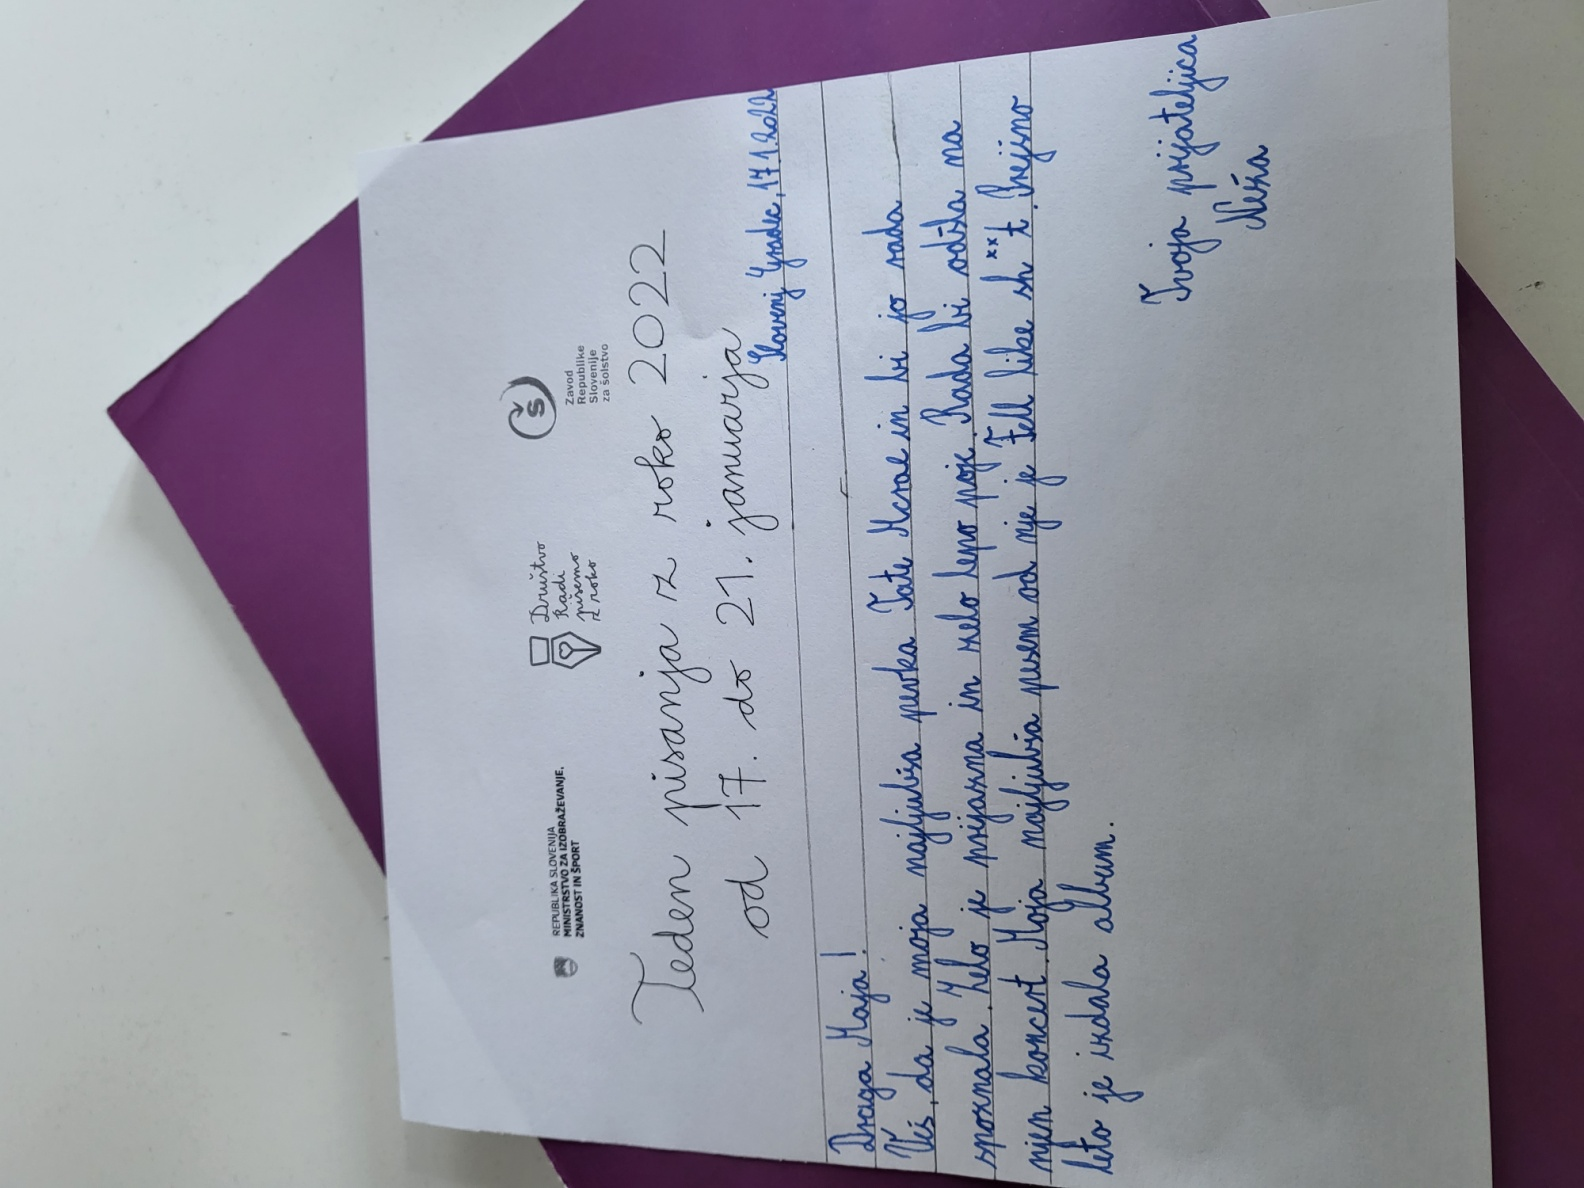 REPUBLIKA SLOVENIJA
MINISTRSTVO ZA IZOBRAŽEVANJE,
ZNANOST IN ŠPORT
Društvo
Radi
pišemo
z roko
Š
Zavod
Republike
Slovenije
za šolstvo
Teden pisanja z roko 2022
od 17. do 21. januarja
Slovenj Gradec, 17.1.2022
Draga Maja!
Veš, da je moja najljubša pevka Tate Mcrae in bi jo rada
spoznala. Zelo je prijazna in zelo lepo poje. Rada bi odšla na
njen koncert. Moja najljubša pesem od nje je Fell like sh**t. Prejšno
leto je izdala album.
Tvoja prijateljica
Neža